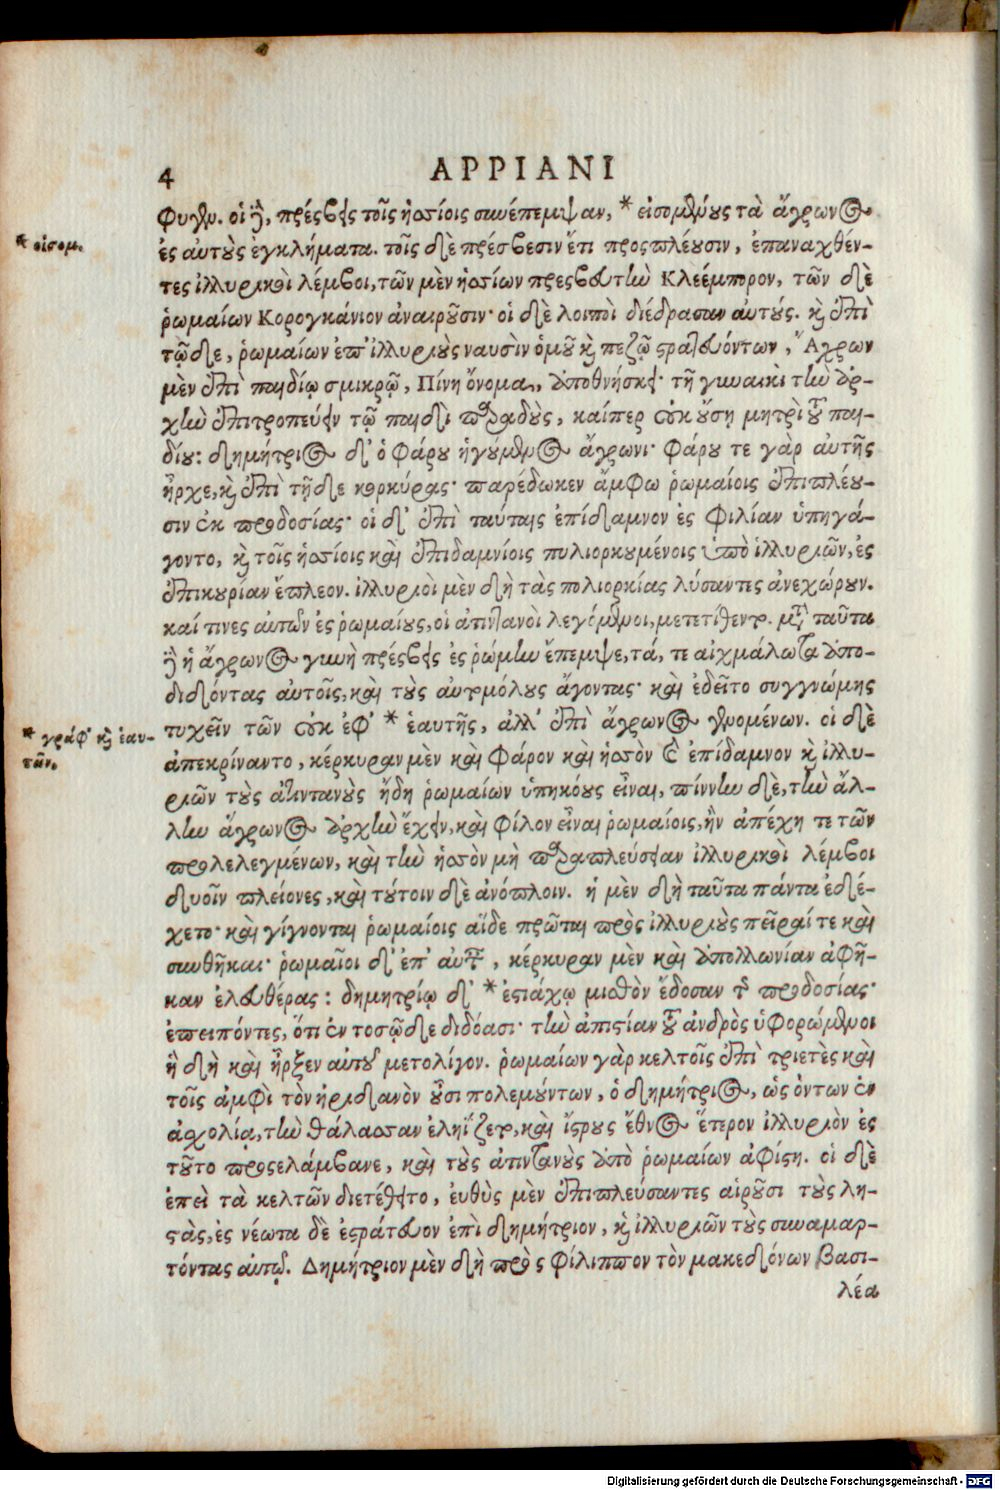 4
APPIANI
φυγεῖν. οἱ δὲ, πρέσβεις τοῖς ἰσσίοις συνέπεμψαν, * εἰσομένους τὰ ἄγρωνος
* οἰσομ.
ἐς αὐτοὺς ἐγκλήματα. τοῖς δὲ πρέσβεσιν ἔτι προσπλέουσιν, ἐπαναχθέν-
τες ἰλλυρικοὶ λέμβοι, τῶν μὲν ἰσσίων πρεσβευτὴν Κλεέμπορον, τῶν δὲ
ῥωμαίων Κορογκάνιον ἀναιροῦσιν· οἱ δὲ λοιποὶ διέδρασαν αὐτούς. καὶ ἐπὶ
τῷδε, ῥωμαίων ἐπ' ἰλλυριοὺς ναυσὶν ὁμοῦ καὶ πεζῷ στρατευόντων, Ἄγρων
μὲν ἐπὶ παιδίῳ σμικρῷ, Πίνῃ ὄνομα, ἀποθνήσκει· τῇ γυναικὶ τὴν ἀρ-
χὴν ἐπιτροπεύειν τῷ παιδὶ παραδοὺς, καίπερ οὐκ οὔσῃ μητρὶ τοῦ παι-
δίου: δημήτριος δ' ὁ φάρου ἡγούμενος ἄγρωνι· φάρου τε γὰρ αὐτῆς
ἦρχε, καὶ ἐπὶ τῇδε κερκύρας· παρέδωκεν ἄμφω ῥωμαίοις ἐπιπλέου-
σιν ἐκ προδοσίας· οἱ δ' ἐπὶ ταύταις ἐπίδαμνον ἐς φιλίαν ὑπηγά-
γοντο, καὶ τοῖς ἰσσίοις καὶ ἐπιδαμνίοις πολιορκουμένοις ὑπὸ ἰλλυριῶν, ἐς
ἐπικουρίαν ἔπλεον. ἰλλυριοὶ μὲν δὴ τὰς πολιορκίας λύσαντες ἀνεχώρουν.
καί τινες αὐτῶν ἐς ῥωμαίους, οἱ ἀτιντανοὶ λεγόμενοι, μετετίθεντο. μετὰ ταῦτα
δὲ ἡ ἄγρωνος γυνὴ πρέσβεις ἐς ῥώμην ἔπεμψε, τά, τε αἰχμάλωτα ἀπο-
διδόντας αὐτοῖς, καὶ τοὺς αὐτομόλους ἄγοντας· καὶ ἐδεῖτο συγγνώμης
τυχεῖν τῶν οὐκ ἐφ' * ἑαυτῆς, ἀλλ' ἐπὶ ἄγρωνος γενομένων. οἱ δὲ
* γράφ' καὶ ἑαυ-
τῶν.
ἀπεκρίναντο, κέρκυραν μὲν καὶ φάρον καὶ ἰσσὸν καὶ ἐπίδαμνον καὶ ἰλλυ-
ριῶν τοὺς ἀτιντανοὺς ἤδη ῥωμαίων ὑπηκόους εἶναι, πίννην δὲ, τὴν ἄλ-
λην ἄγρωνος ἀρχὴν ἔχειν, καὶ φίλον εἶναι ῥωμαίοις, ἢν ἀπέχῃ τε τῶν
προλελεγμένων, καὶ τὴν ἰσσὸν μὴ παραπλεύσειαν ἰλλυρικοὶ λέμβοι
δυοῖν πλείονες, καὶ τούτοιν δὲ ἀνόπλοιν. ἡ μὲν δὴ ταῦτα πάντα ἐδέ-
χετο· καὶ γίγνονται ῥωμαίοις αἵδε πρῶται πρὸς ἰλλυριοὺς πεῖραί τε καὶ
συνθῆκαι· ῥωμαῖοι δ' ἐπ' αὐτ, κέρκυραν μὲν καὶ ἀπολλωνίαν ἀφῆ-
καν ἐλευθέρας: δημητρίῳ δ' * ἐστιάχῳ μισθὸν ἔδοσαν τῆς προδοσίας·
ἐπειπόντες, ὅτι ἐν τοσῷδε διδόασι· τὴν ἀπιστίαν τοῦ ἀνδρὸς ὑφορώμενοι
ἣ δὴ καὶ ἦρξεν αὐτοῦ μετολίγον. ῥωμαίων γὰρ κελτοῖς ἐπὶ τριετὲς καὶ
τοῖς ἀμφὶ τὸν ἠριδανὸν οὖσι πολεμούντων, ὁ δημήτριος, ὡς ὄντων ἐν
ἀσχολίᾳ, τὴν θάλασσαν ἐληΐζετο, καὶ ἴστρους ἔθνος ἕτερον ἰλλυριὸν ἐς
τοῦτο προσελάμβανε, καὶ τοὺς ἀτιντανοὺς ἀπὸ ῥωμαίων ἀφίστη. οἱ δὲ
ἐπεὶ τὰ κελτῶν διετέθειτο, ἐυθὺς μὲν ἐπιπλεύσαντες αἱροῦσι τοὺς λη-
στὰς, ἐς νέωτα δὲ ἐστράτευον ἐπὶ δημήτριον, καὶ ἰλλυριῶν τοὺς συναμαρ-
τόντας αὐτῷ. Δημήτριον μὲν δὴ πρὸς φίλιππον τὸν μακεδόνων βασι-
λέα
Digitalisierung gefördert durch die Deutsche Forschungsgemeinschaft - DFG